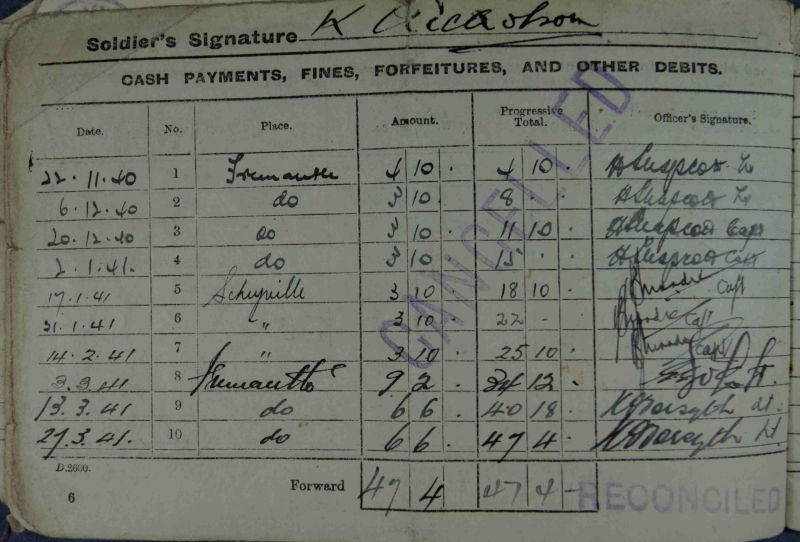 Soldier's Signature K Nicholson
CASH PAYMENTS, FINES, FORFEITURES, AND OTHER DEBITS.
Date. No. Place. Amount. Progressive Total. Officer's Signature.
22.11.40 1 Fremantle 4 10 . 4 10 .
6.12.40 2 do 3 10 . 8 . .
20.12.40 3 do 3 10 . 11 10 . Capt
2.1.41. 4 do 3 10 . 15 . . Capt
17.1.41 5 Scheyville 3 10 18 10 . Capt
31.1.41 6 " 3 10 . 22 - Capt
14.2.41 7 " 3 10 . 25 10 . Capt
3.3.41 8 Fremantle 9 2 . 34 12 . Lt.
13.3.41 9 do 6 6 . 40 18 . Forsyth Lt.
27.3.41. 10 do 6 6 . 47 4 . Forsyth Lt
CANCELLED
D.2600.
Forward 47 4 47 4 -
RECONCILED
6